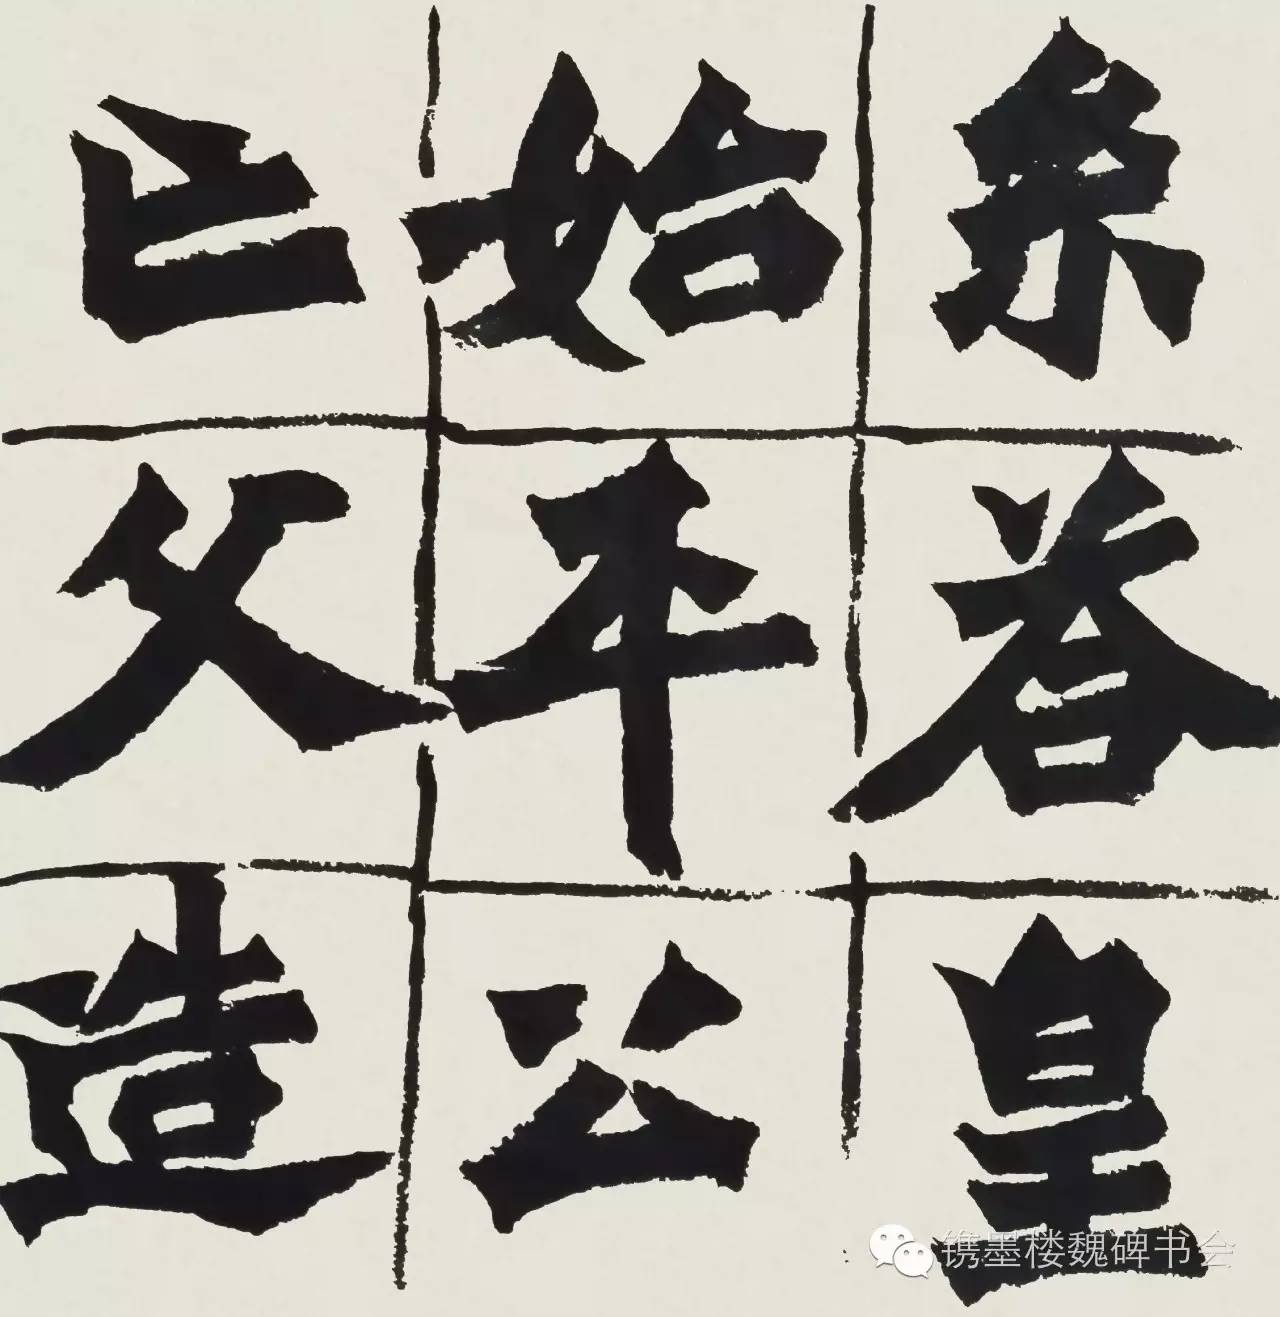 系荅皇
始平公
亡父造
镌墨楼魏碑书会